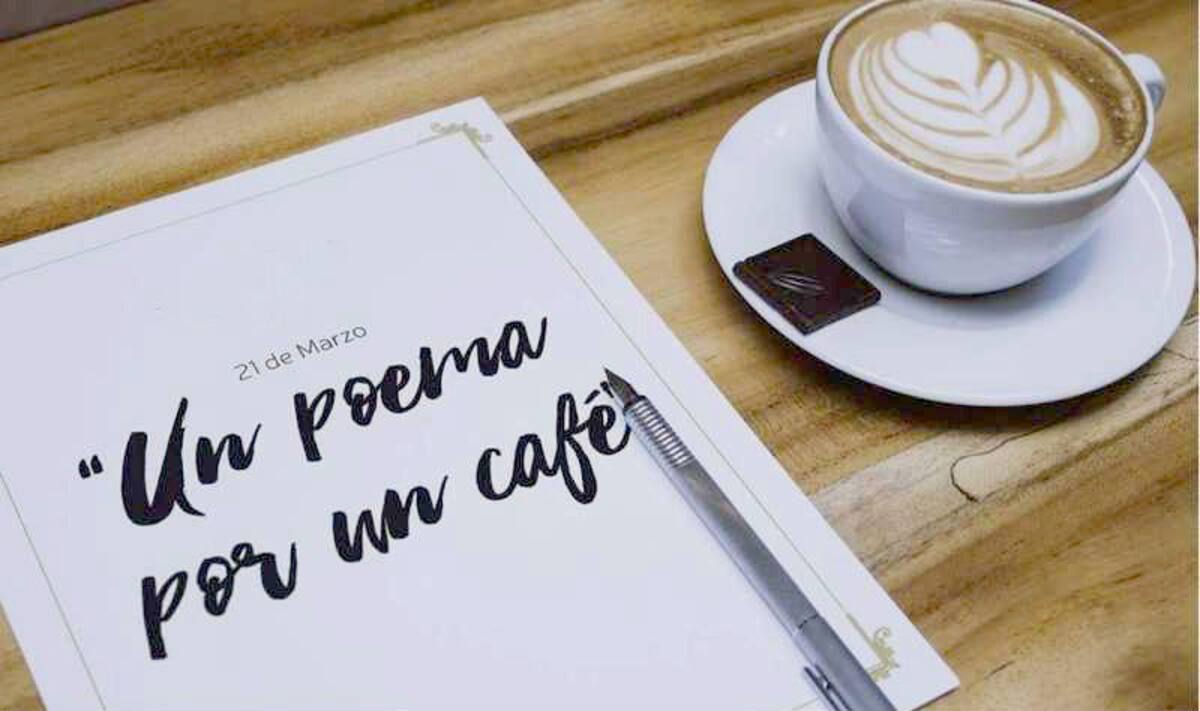 21 de Marzo
“Un poema
por un café